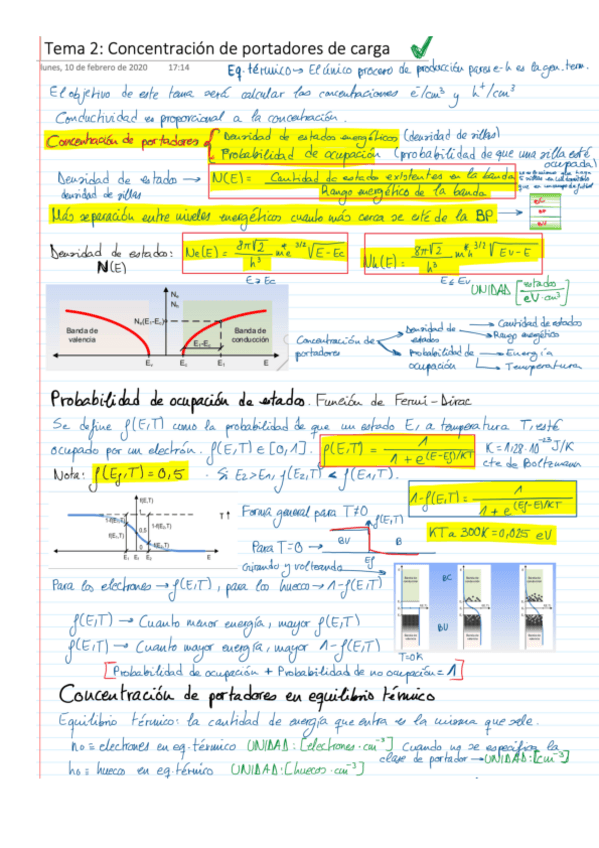 Tema 2: Concentración de portadores de carga
lunes, 10 de febrero de 2020 17:14
Eq. térmico → El único proceso de producción pares e-h es la gen. term.
El objetivo de este tema será calcular las concentraciones e⁻/cm³ y h⁺/cm³
Conductividad es proporcional a la concentración.
Concentración de portadores { Densidad de estados energéticos (densidad de sillas)
Probabilidad de ocupación (probabilidad de que una silla esté ocupada)
Densidad de estado → N(E) = Cantidad de estados existentes en la banda / Rango energético de la banda
densidad de sillas
Más separación entre niveles energéticos cuanto más cerca se esté de la BP.
BC
BP
BV
Densidad de estados: N(E)
Ne(E) = 8π√2/h³ me*^3/2 √E-Ec
E≥Ec
Nh(E) = 8π√2/h³ mh*^3/2 √Ev-E
E≤Ev
UNIDAD [estados/eV·cm³]
Nₑ
Nₕ
Nₑ(E₁-E꜀)
Banda de valencia
Banda de conducción
E₁-E꜀
Eᵥ E꜀ E₁ E
Concentración de portadores
Densidad de estados → Cantidad de estados
→ Rango energético
Probabilidad de ocupación → Energía
→ Temperatura
Probabilidad de ocupación de estados. Función de Fermi-Dirac
Se define f(E,T) como la probabilidad de que un estado E, a temperatura T, esté
ocupado por un electrón. f(E,T) ∈ [0,1]. f(E,T) = 1 / 1 + e^(E-Ef)/KT
K = 1,28·10⁻²³ J/K
cte de Boltzmann
Nota: f(Ef,T) = 0,5 · Si E2>E1, f(E2,T) < f(E1,T).
1-f(E,T) = 1 / 1 + e^(Ef-E)/KT
KT a 300K = 0,025 eV
f(E,T)
1
0,5
0
f(E₁,T)
1-f(E₂,T)
f(E₂,T)
E
T↑
Forma general para T≠0
Para T=0 →
f(E,T)
BV
B
Ef
Girando y volteando
BC
BV
T=0K
Para los electrones → f(E,T), para los huecos → 1-f(E,T)
f(E,T) → Cuanto menor energía, mayor f(E,T)
f(E,T) → Cuanto mayor energía, mayor 1-f(E,T)
[Probabilidad de ocupación + Probabilidad de no ocupación = 1]
Concentración de portadores en equilibrio térmico
Equilibrio térmico: la cantidad de energía que entra es la misma que sale.
n₀ ≡ electrones en eq. térmico UNIDAD: [electrones·cm⁻³] Cuando no se especifica la
clase de portador → UNIDAD: [cm⁻³]
h₀ ≡ huecos en eq. térmico UNIDAD: [huecos·cm⁻³]